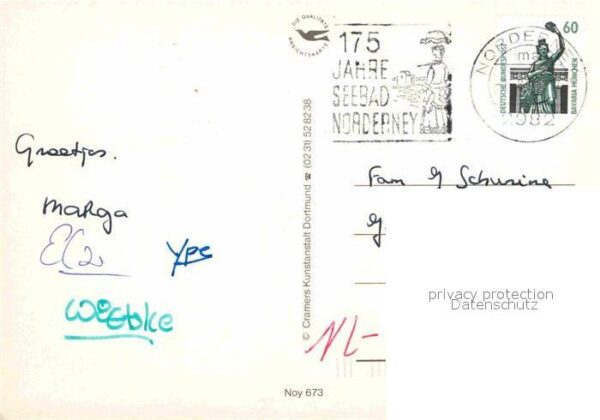 Groetjes.
Marga
Ypc
Wietske
DIE QUALITÄTS
ANSICHTSKARTE
175
JAHRE
SEEBAD
NORDERNEY
NORDERN
2982
60
DEUTSCHE BUNDESPOST
BAVARIA MÜNCHEN
© Cramers Kunstanstalt Dortmund ☎ (0231) 528238
Fam
G
NL-
privacy protection
Datenschutz
Noy 673